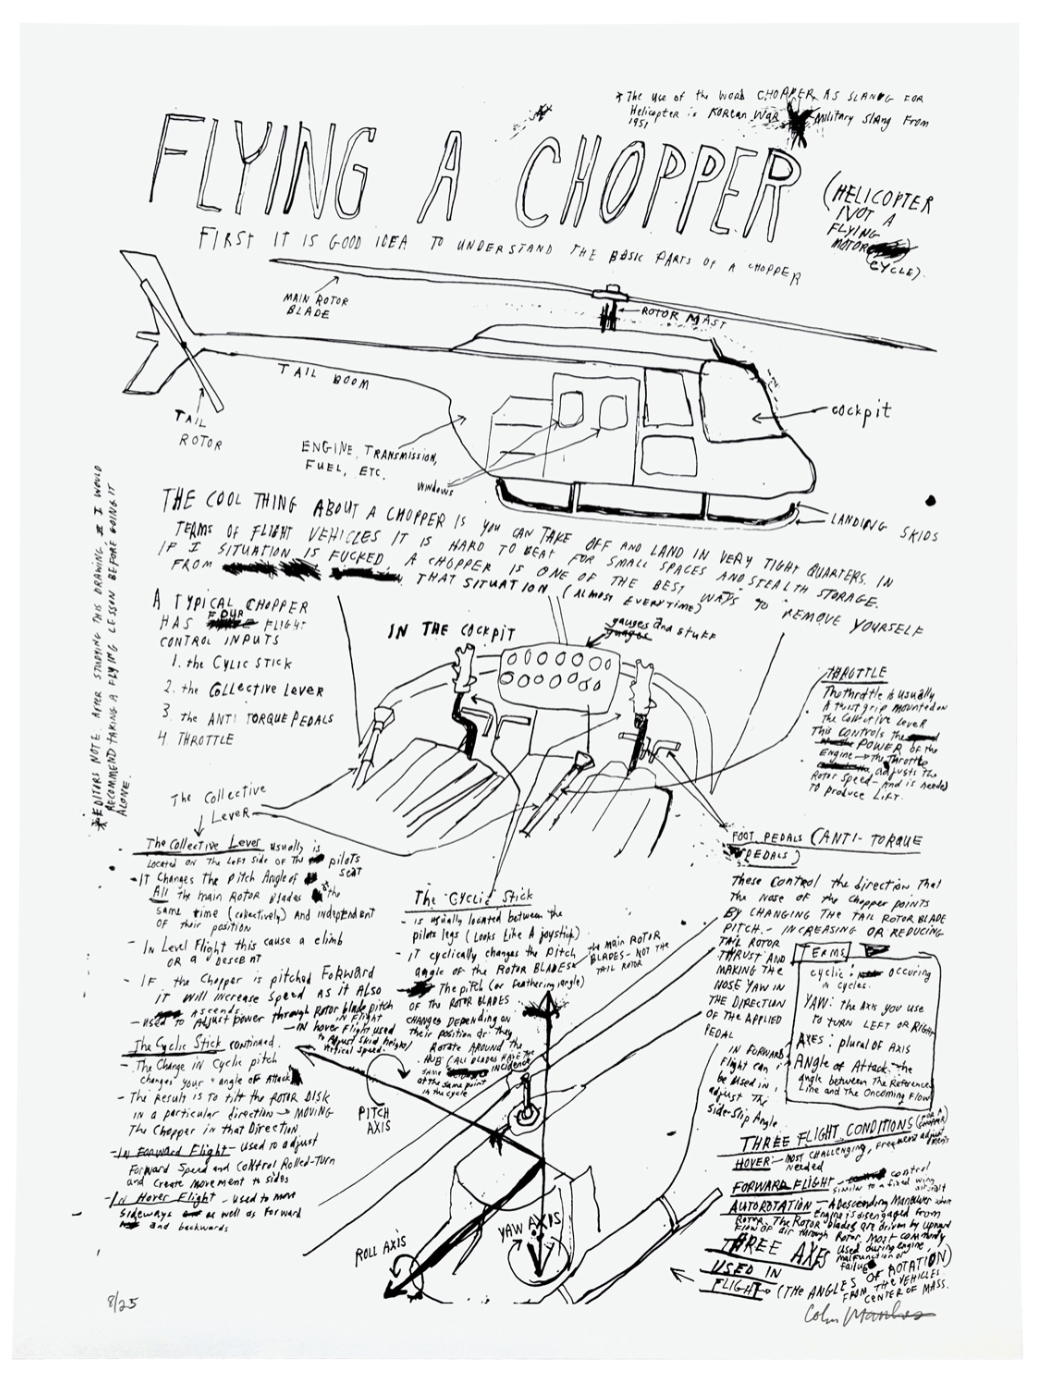 * The use of the word CHOPPER AS SLANG FOR
Helicopter is Korean War Military Slang From
1951
FLYING A CHOPPER
(HELICOPTER
NOT A
FLYING
MOTOR
CYCLE).
FIRST IT IS GOOD IDEA TO UNDERSTAND THE BASIC PARTS OF A CHOPPER
MAIN ROTOR
BLADE
ROTOR MAST
TAIL BOOM
TAIL
ROTOR
cockpit
ENGINE, TRANSMISSION,
FUEL, ETC.
windows
LANDING SKIDS
THE COOL THING ABOUT A CHOPPER IS YOU CAN TAKE OFF AND LAND IN VERY TIGHT QUARTERS. IN
TERMS OF FLIGHT VEHICLES IT IS HARD TO BEAT FOR SMALL SPACES AND STEALTH STORAGE.
IF I SITUATION IS FUCKED, A CHOPPER IS ONE OF THE BEST WAYS TO REMOVE YOURSELF
FROM THAT SITUATION (ALMOST EVERYTIME)
* EDITORS NOTE: AFTER STUDYING THIS DRAWING I WOULD
RECOMMEND TAKING A FLYING LESSON BEFORE GOING IT
ALONE.
A TYPICAL CHOPPER
HAS FOUR FLIGHT
CONTROL INPUTS
1. the CYLIC STICK
2. the COllECTIVE LEVER
3. the ANTI TORQUE PEDALS
4 THROTTLE
IN THE COCKPIT
gauges and stuff
THROTTLE
The throttle is usually
A twist grip mounted on
The Collective Lever
This controls the
POWER of the
Engine - the Throttle
adjusts the
Rotor Speed - and is needed
TO produce LIFT.
The Collective
Lever
The Collective Lever usually is
Located on the Left side of the pilots
seat
- IT Changes the Pitch Angle of
All the main Rotor Blades the
same time (collectively) and independent
of their position
- In Level Flight this cause a climb
or a descent
- IF the Chopper is pitched Forward
IT will increase Speed as it Also
ascends
- used to Adjust power through Rotor blade pitch
in Flight
- IN hover Flight used
to Adjust skid height/
vertical speed.
The Cyclic Stick continued.
- The Change in Cyclic pitch
changes your angle of Attack
- The Result is to tilt the ROTOR DISK
in a particular direction → MOVING
The Chopper in that Direction
- In Forward Flight - Used to adjust
Forward Speed and control Rolled-Turn
and Create movement to sides
- In Hover Flight - used to move
Sideways as well as Forward
and backwards
The Cyclic Stick
- is usually located between the
pilots legs (Looks Like A joystick)
- IT cyclically changes the Pitch
angle of the ROTOR BLADES
the main ROTOR
BLADES - NOT THE
TAIL ROTOR
- The pitch (or feathering angle)
OF the ROTOR BLADES
CHANGES DEPENDING on
their position as they
Rotate AROUND the
HUB (ALL BLADES HAVE the
same INCIDENCE
at the same point
in the cycle
FOOT PEDALS (ANTI-TORQUE
PEDALS)
These control the direction That
the Nose of the Chopper points
BY CHANGING THE TAIL ROTOR BLADE
PITCH. - INCREASING OR REDUCING
TAIL ROTOR
THRUST AND
MAKING THE
NOSE YAW IN
THE DIRECTION
OF THE APPLIED
PEDAL
IN FORWARD
Flight can
be used in
adjust The
side-slip Angle
TERMS
cyclic: occuring
in cycles.
YAW: the Axis you use
to TURN LEFT OR RIGHT
AXES: plural of AXIS
ANGle of Attack - the
angle between The Reference
Line and The Oncoming Flow
THREE FLIGHT CONDITIONS (FOR A CHOPPER)
HOVER - MOST CHALLENGING, Frequent adjustments
needed
FORWARD FLIGHT - control
similar to a fixed wing
aircraft
AUTOROTATION - A Descending Maneuver when
Engine is disengaged from
Rotor. The Rotor blades are driven by upward
flow of air through Rotor. Most commonly
used during engine
malfunction or
failure
THREE AXES
USED IN
FLIGHT - (THE ANGLES OF ROTATION)
FROM THE VEHICLES
CENTER OF MASS.
PITCH
AXIS
ROLL AXIS
YAW AXIS
8/25